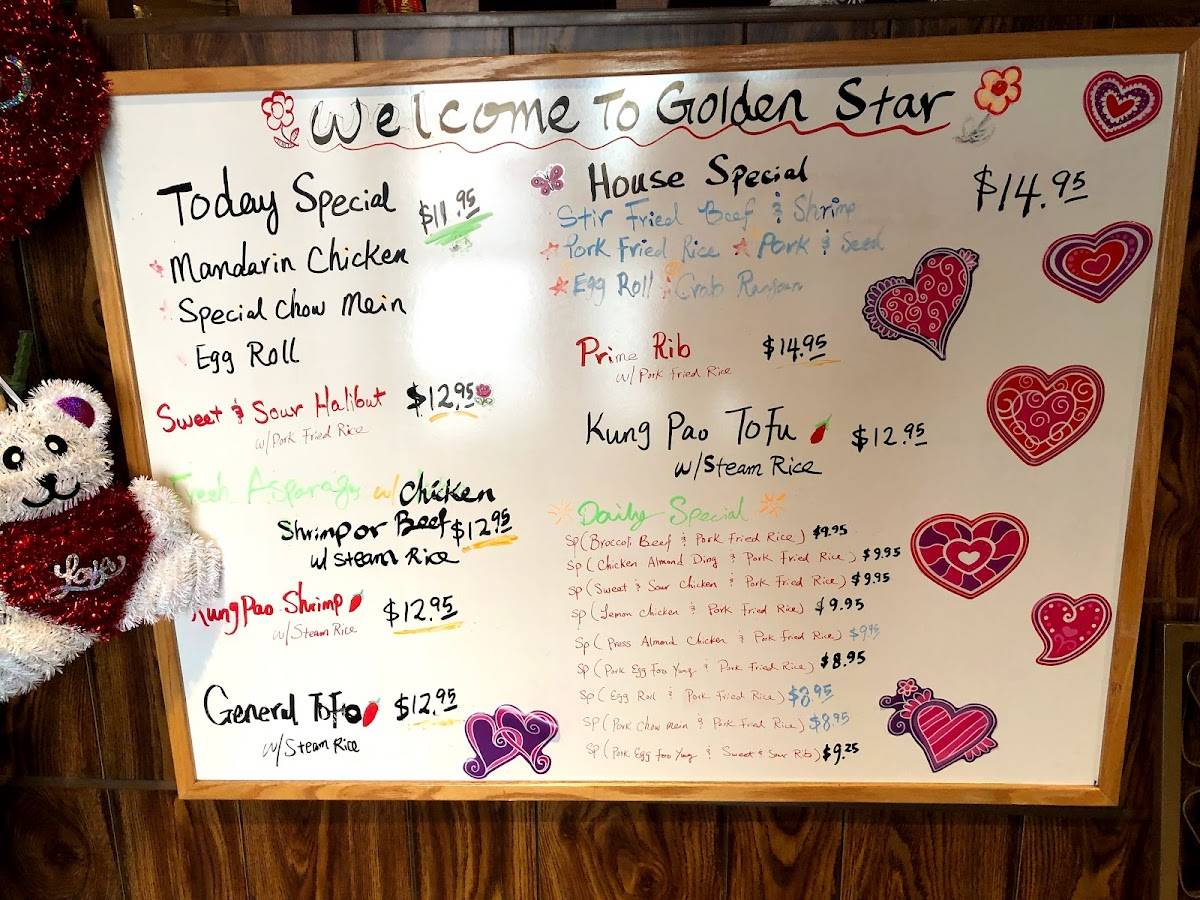 Welcome To Golden Star
Today Special $11.95
Mandarin Chicken
Special Chow Mein
Egg Roll
Sweet & Sour Halibut $12.95
w/Pork Fried Rice
Fresh Asparagus w/ Chicken
Shrimp or Beef $12.95
w/ Steam Rice
Kung Pao Shrimp $12.95
w/Steam Rice
General Tofo $12.95
w/Steam Rice
House Special $14.95
Stir Fried Beef & Shrimp
Pork Fried Rice Pork & Seed
Egg Roll Crab
Prime Rib $14.95
w/ Pork Fried Rice
Kung Pao Tofu $12.95
w/Steam Rice
Daily Special
sp (Broccoli Beef & Pork Fried Rice) $9.95
sp (Chicken Almond Ding & Pork Fried Rice) $9.95
sp (Sweet & Sour Chicken & Pork Fried Rice) $9.95
sp (Lemon Chicken & Pork Fried Rice) $9.95
sp (Press Almond Chicken & Pork Fried Rice) $9.95
sp (Pork Egg Foo Yung & Pork Fried Rice) $8.95
sp (Egg Roll & Pork Fried Rice) $8.95
sp (Pork Chow mein & Pork Fried Rice) $8.95
sp (Pork Egg Foo Yung & Sweet & Sour Rib) $9.25
Love